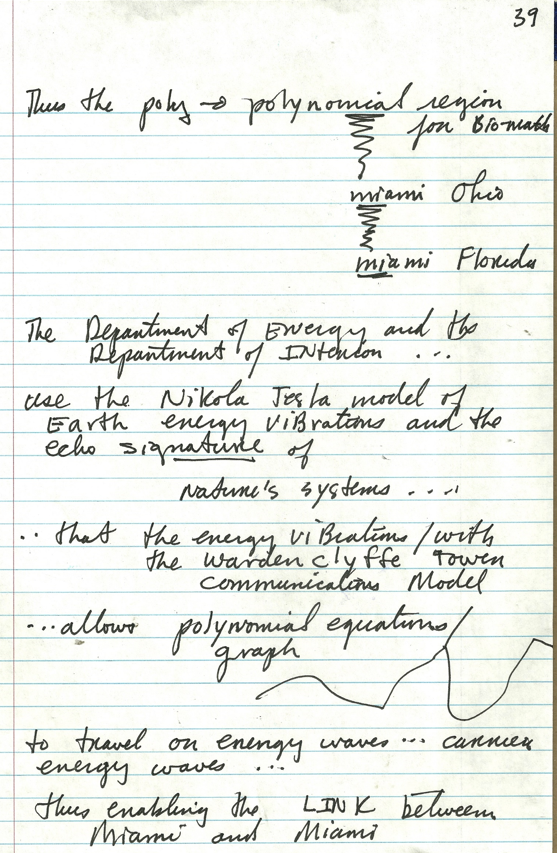 39
Thus the poly → polynomial region
for Bio-math
miami Ohio
miami Florida
The Department of Energy and the
Department of INterion ...
use the Nikola Tesla model of
Earth energy viBrations and the
echo signature of
Nature's systems ....
.. that the energy viBrations/with
the Wardenclyffe Tower
communications Model
...allows polynomial equations/
graph
to travel on energy waves ... carrier
energy waves ...
thus enabling the LINK between
Miami and Miami